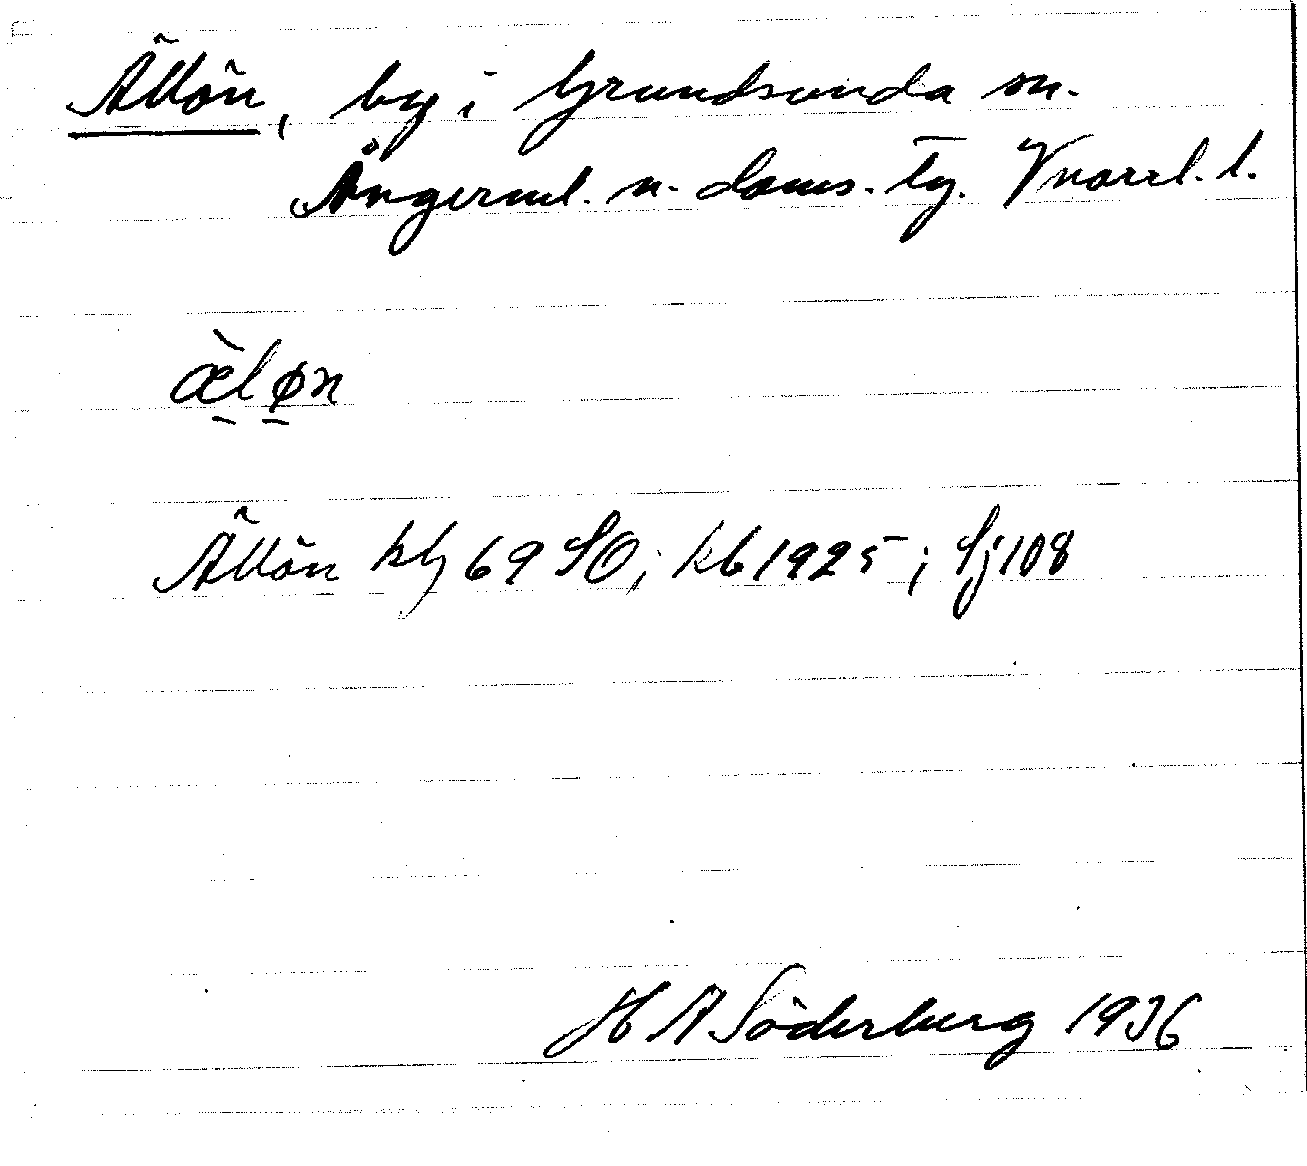 Ällön, by i Grundsunda sn.
Ångerml. n. doms. tg. Vnorrl. l.
æ̀løn
Ällön kbg 69 SO; kb 1925; Sj 108
H A Söderberg 1936